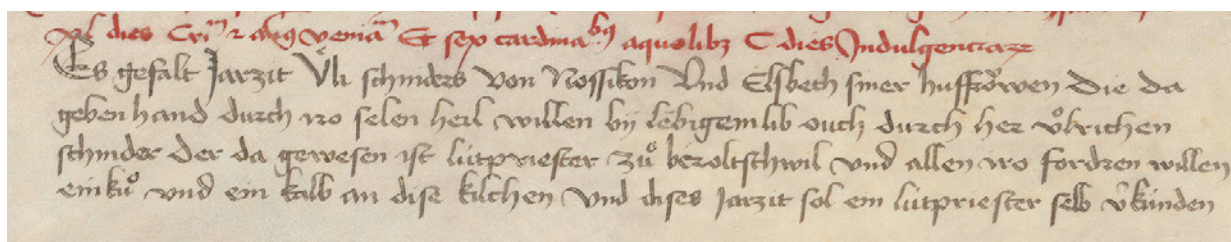 xl dies Crim̄ 2 ang veniā Et sex cardinabꝫ aquolibꝫ C dies Indulgenciaꝝ
Es gefalt Jarzit Ůli schniders von Nossikon Vnd Elsbeth siner husfrowen die da
geben hand durch iro selen heil willen bij lebigem lib ouch durch her ůlrichen
schnider der da gewesen ist lütpriester zů bezoltschwil vnd allen iro fordren willen
ein ků vnd ein kalb an dise kilchen Vnd dises Jarzit sol ein lütpriester selb v̂künden